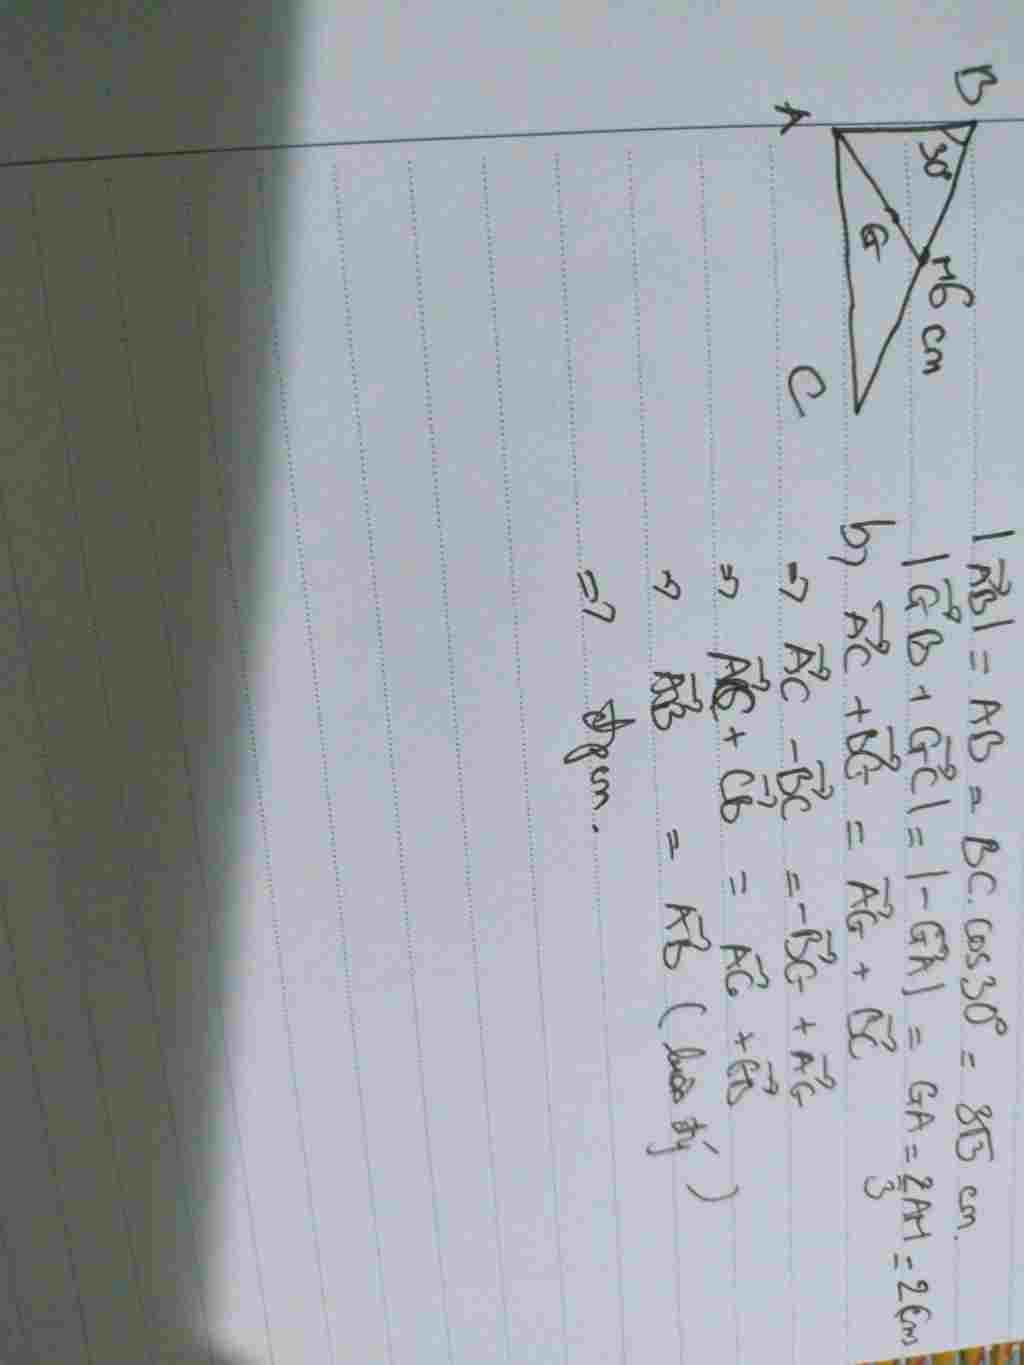 B
A
30°
G
M 6 cm
C
|AB⃗| = AB = BC. cos30° = 3√3 cm.
|GB⃗ + GC⃗| = |-GA⃗| = GA = 2/3 AM = 2cm
b, AC⃗ + BG⃗ = AG⃗ + BC⃗
=> AC⃗ - BC⃗ = -BG⃗ + AG⃗
=> AC⃗ + CB⃗ = AG⃗ + GB⃗
=> AB⃗ = AB⃗ (luôn đý)
=> đpcm.